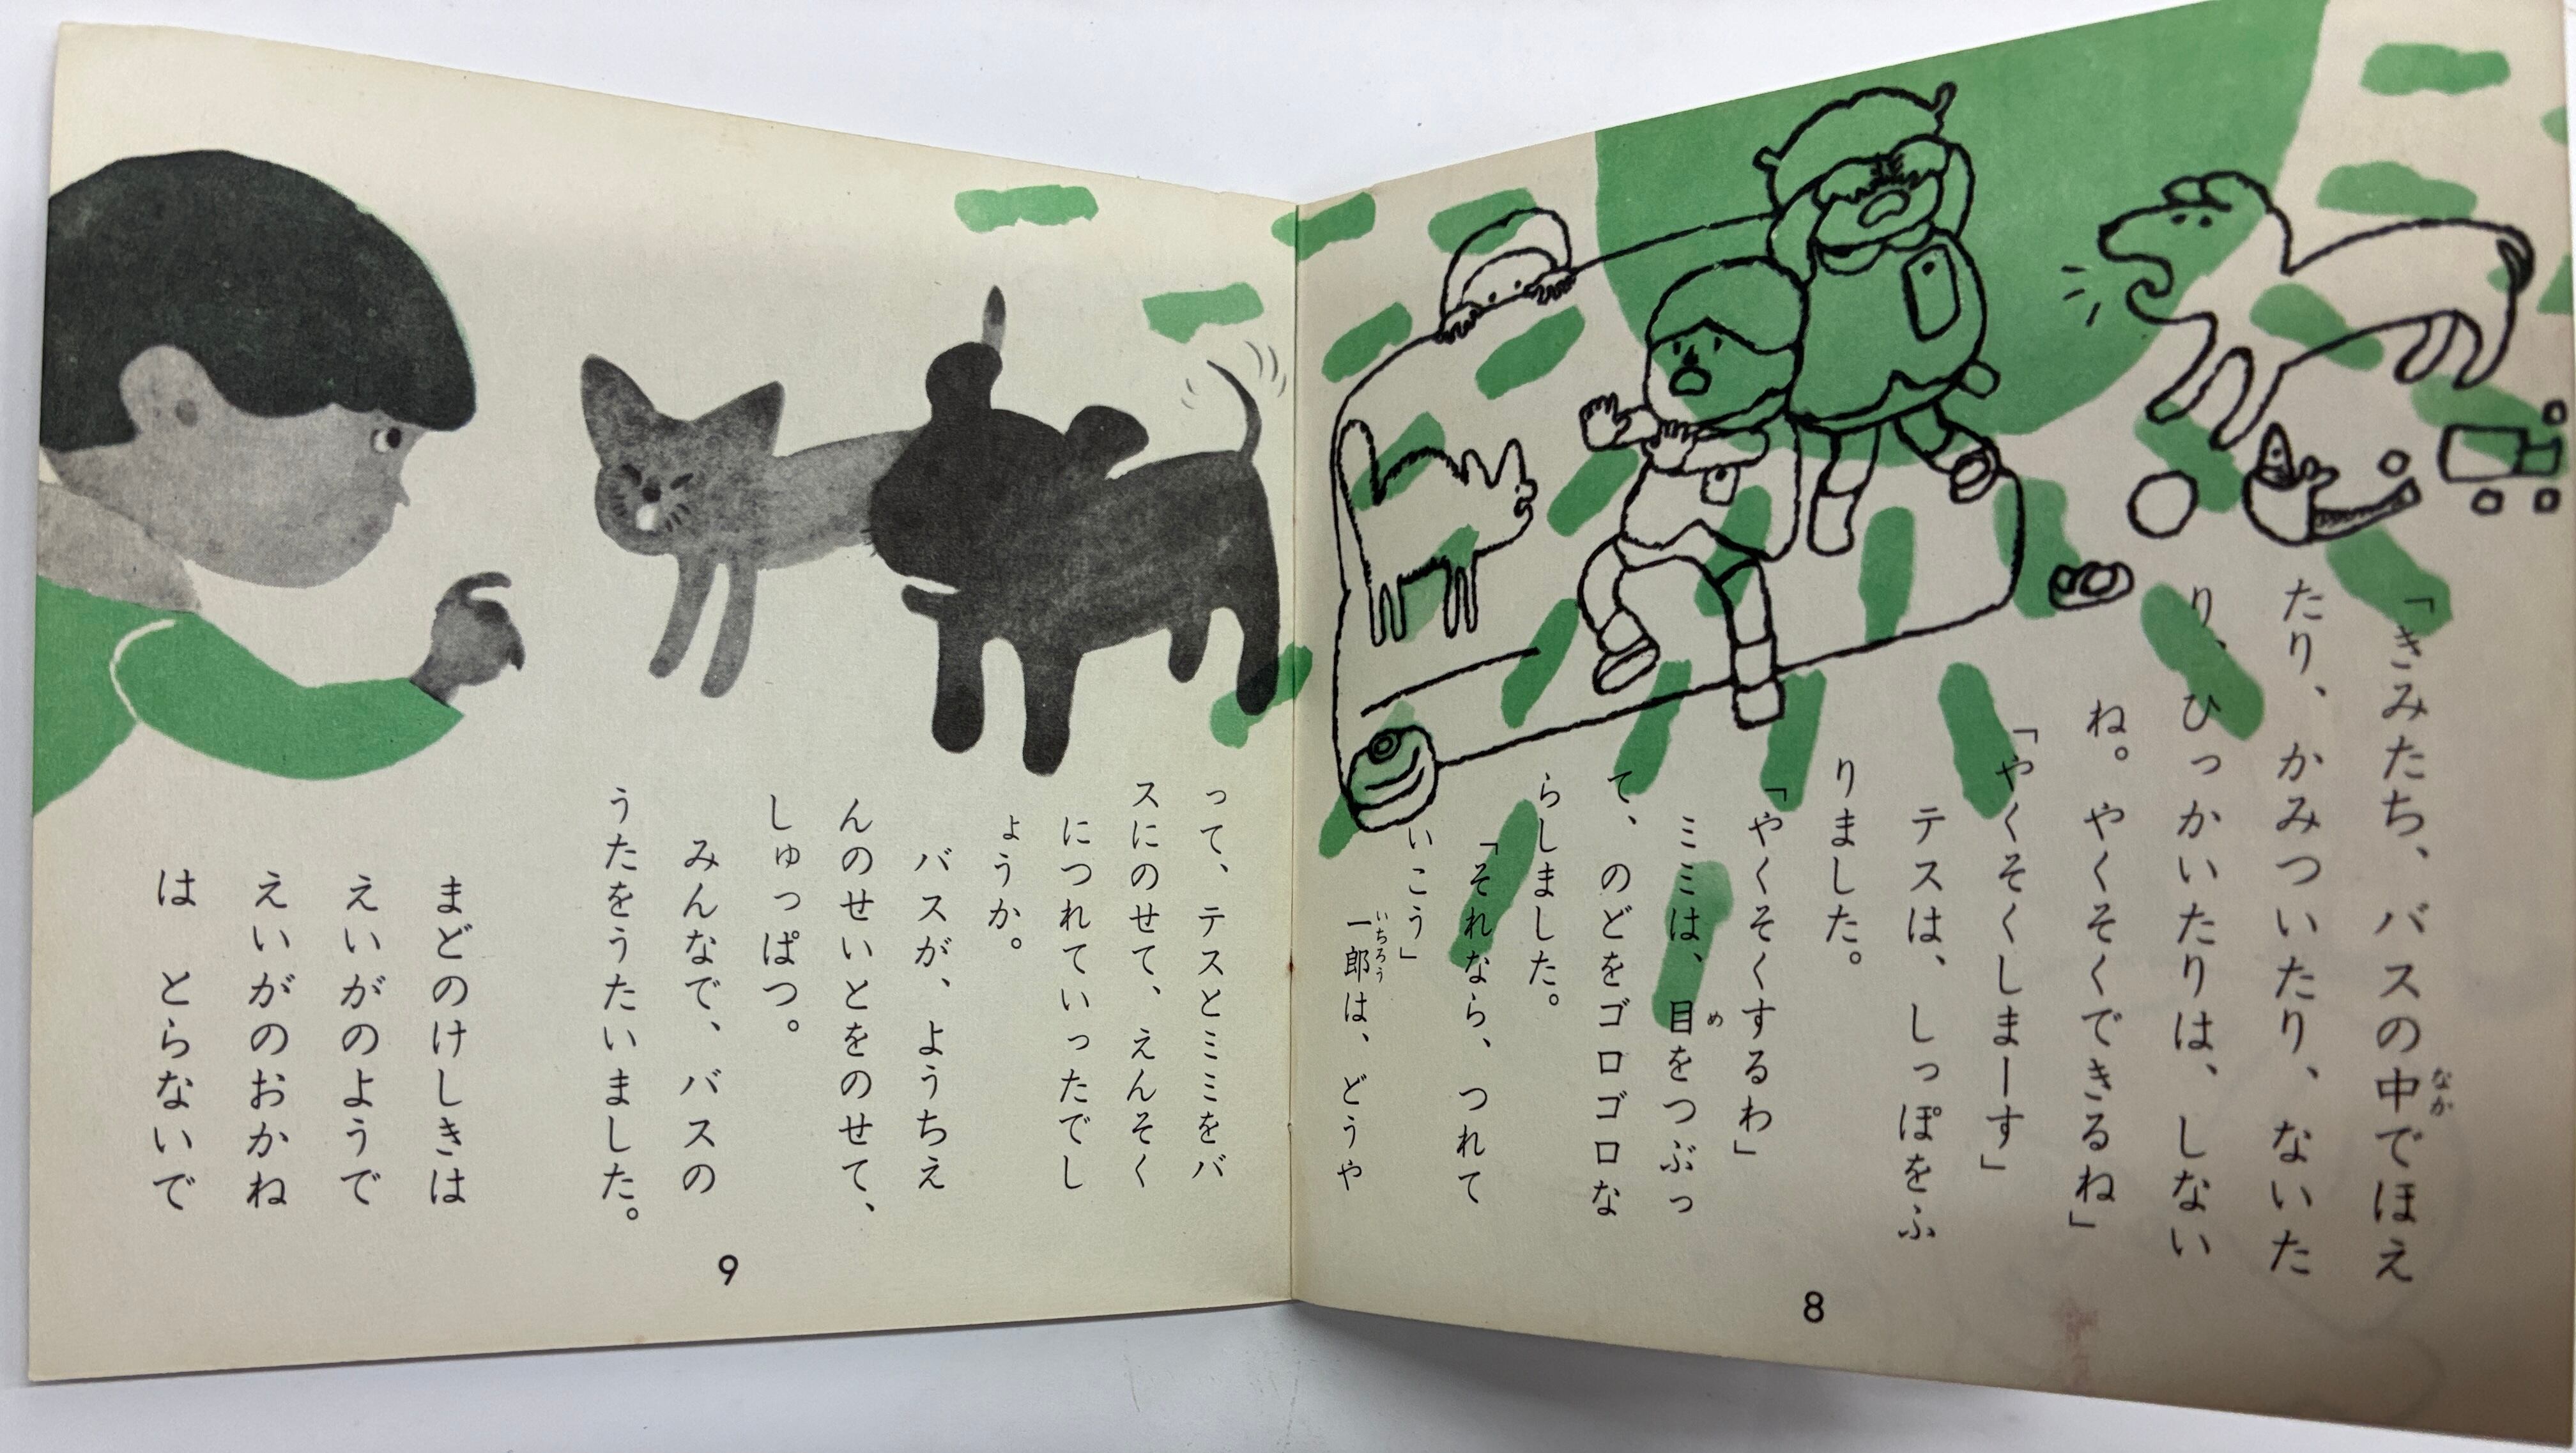 「きみたち、バスの中でほえ
なか
たり、かみついたり、ないた
り、ひっかいたりは、しない
ね。やくそくできるね」
「やくそくしまーす」
テスは、しっぽをふ
りました。
「やくそくするわ」
ミミは、目をつぶっ
め
て、のどをゴロゴロな
らしました。
「それなら、つれて
いこう」
一郎は、どうや
いちろう
8
って、テスとミミをバ
スにのせて、えんそく
につれていったでし
ょうか。
バスが、ようちえ
んのせいとをのせて、
しゅっぱつ。
みんなで、バスの
うたをうたいました。
まどのけしきは
えいがのようで
えいがのおかね
は とらないで
9